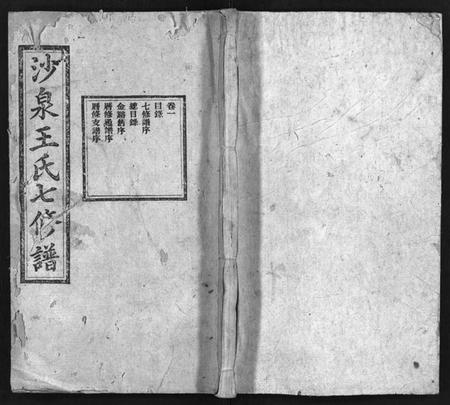 沙泉王氏七修譜
卷一
目錄
七修譜序
總目錄
金谿舊序
曆修通譜序
曆修支譜序